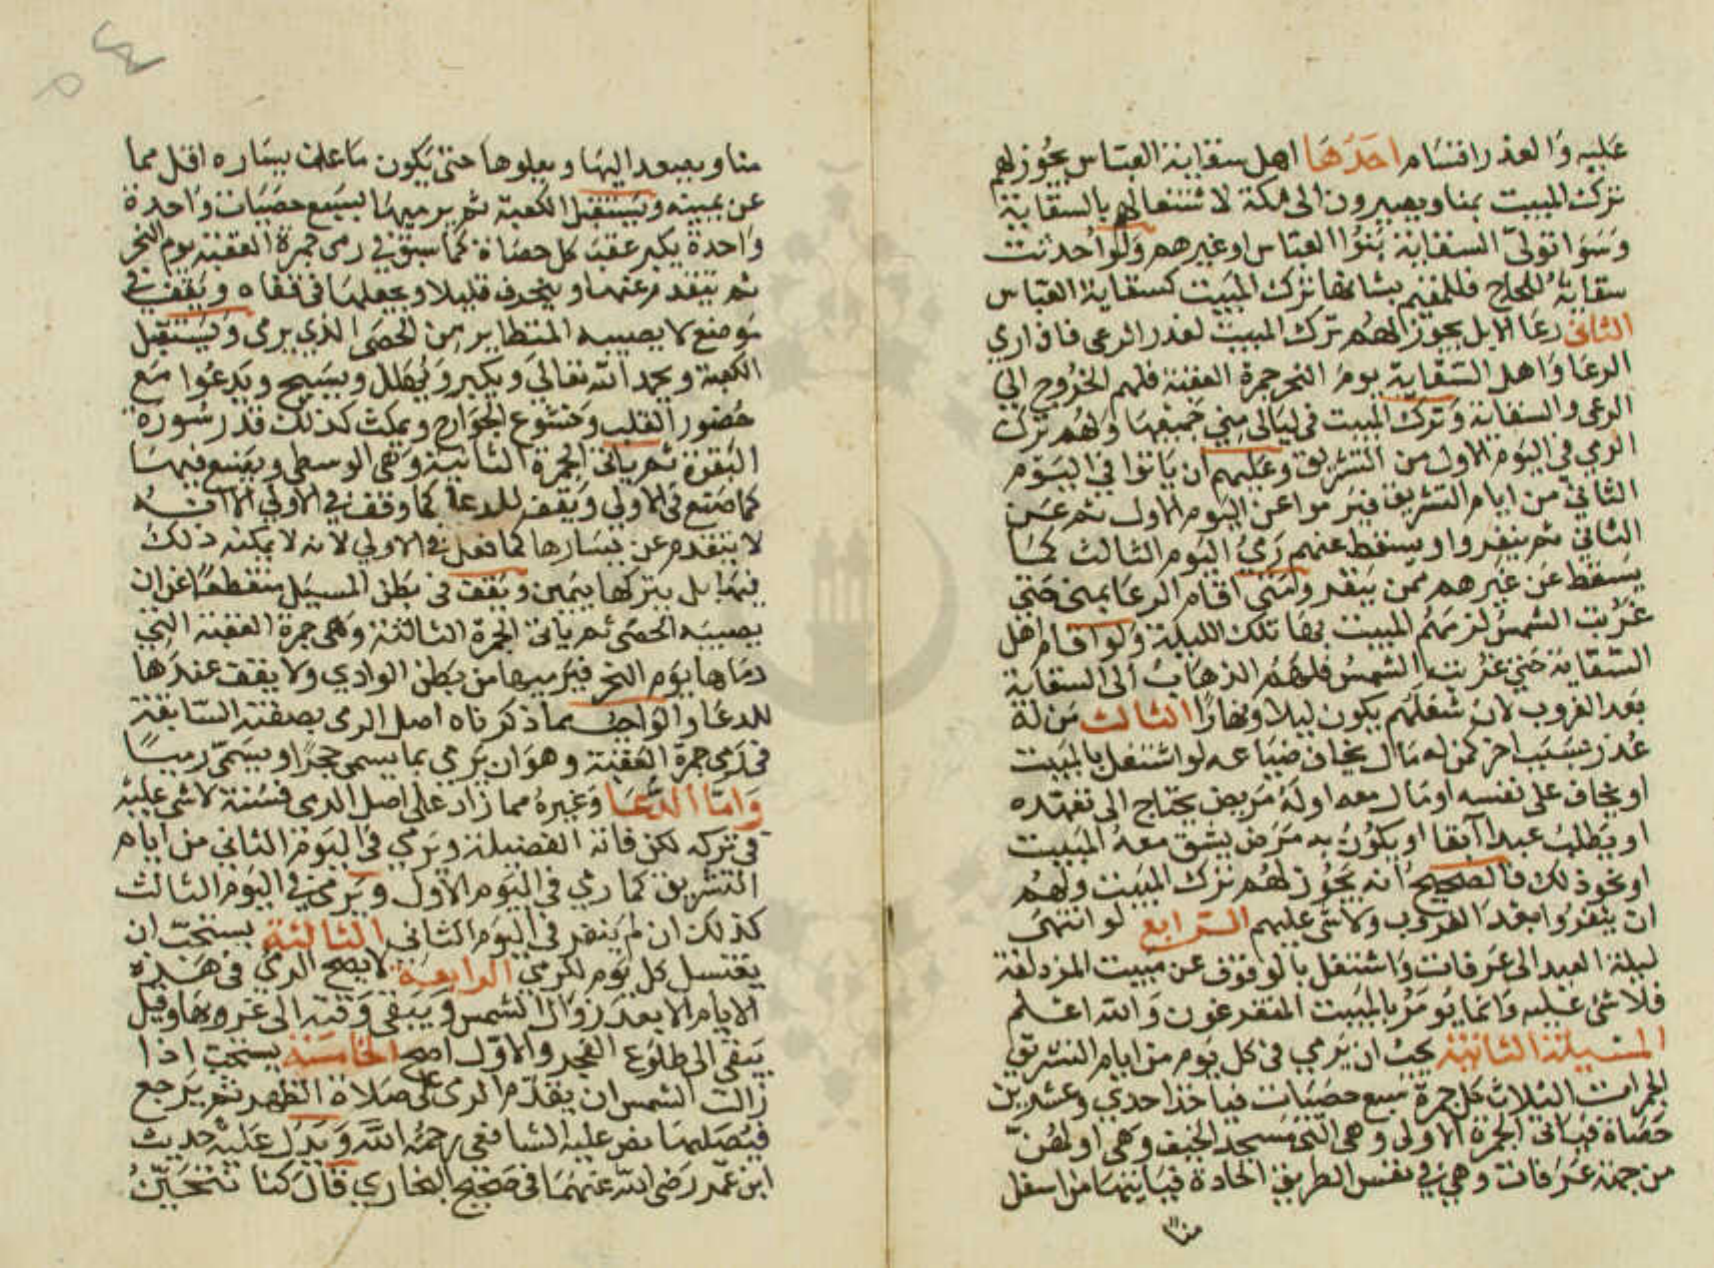 عليه والعذر اقسام احدها اهل سقاية العباس يجوز لهم
ترك المبيت بمنا ويصيرون الى مكة لاشتغالهم بالسقاية
وسوا تولى السقاية بنوا العباس او غيرهم ولو احدثت
سقاية للحاج فللمقيم بشانها ترك المبيت كسقاية العباس
الثاني رعا الابل يجوز لهم ترك المبيت لعذر الرعى فاذا رمى
الرعا واهل السقاية يوم النحر جمرة العقبة فلهم الخروج الى
الرعى والسقاية وترك المبيت في ليالى منى جميعها ولهم ترك
الرمي في اليوم الاول من التشريق وعليهم ان ياتوا في اليوم
الثاني من ايام التشريق فيرموا عن اليوم الاول ثم عن
الثاني ثم ينفروا ويسقط عنهم رمي اليوم الثالث كما
يسقط عن غيرهم ممن ينفر ومتى اقام الرعا بمنى حتى
غربت الشمس لزمهم المبيت بها تلك الليلة ولو اقام اهل
السقاية حتى غربت الشمس فلهم الذهاب الى السقاية
بعد الغروب لان شغلهم يكون ليلا ونهارا الثالث من له
عذر بسبب اخر كمن له مال يخاف ضياعه لو اشتغل بالمبيت
او يخاف على نفسه او مال معه او له مريض يحتاج الى تعهده
او يطلب عبدا آبقا او يكون به مرض يشق معه المبيت
او نحو ذلك فالصحيح انه يجوز لهم ترك المبيت ولهم
ان ينفروا بعد الغروب ولا شي عليهم الرابع لو انتهى
ليلة العيد الى عرفات واشتغل بالوقوف عن مبيت المزدلفة
فلا شئ عليه وانما يومر بالمبيت المتفرغون والله اعلم
المسيلة الثانية يجب ان يرمي في كل يوم من ايام التشريق
الجمرات الثلاث كل جمرة سبع حصيات فياخذ احدي وعشرين
حصاة فياتي الجمرة الاولى وهي التي مسجد الخيف وهي اولهن
من جهة عرفات وهي في نفس الطريق الجادة فياتيها من اسفل
منا
منا ويصعد اليها ويعلوها حتى يكون ما على يساره اقل مما
عن يمينه ويستقبل الكعبة ثم يرميها بسبع حصيات واحدة
واحدة يكبر عقب كل حصاة كما سبق في رمى جمرة العقبة يوم النحر
ثم يتقدم عنها وينحرف قليلا ويجعلها في قفاه ويقف في
موضع لا يصيبه المتطاير من الحصى الذي يرمى ويستقبل
الكعبة ويحمد الله تعالى ويكبر ويهلل ويسبح ويدعوا مع
حضور القلب وخشوع الجوارح ويمكث كذلك قدر سورة
البقرة ثم ياتى الجمرة الثانية وهي الوسطى ويصنع فيها
كما صنع في الاولي ويقف للدعا كما وقف في الاولي الا انه
لا يتقدم عن يسارها كما فعل في الاولي لانه لا يمكنه ذلك
فيها بل يتركها بيمين ويقف في بطن المسيل منقطعا عن ان
يصيبه الحصى ثم ياتي الجمرة الثالثة وهي جمرة العقبة التي
رماها يوم النحر فيرميها من بطن الوادي ولا يقف عندها
للدعا والواجب مما ذكرناه اصل الرمى بصفته السابقة
في رمى جمرة العقبة وهو ان يرمي بما يسمى حجرا ويسمى رميا
واما الدعا وغيره مما زاد على اصل الرمى فسنة لا شي عليه
في تركه لكن فاته الفضيلة ويرمي في اليوم الثاني من ايام
التشريق كما رمي في اليوم الاول ويرمي في اليوم الثالث
كذلك ان لم ينفر في اليوم الثاني الثالثة يستحب ان
يغتسل كل يوم للرمي الرابعة لا يصح الرمي في هذه
الايام الا بعد زوال الشمس ويبقى وقته الى غروبها وقيل
يبقي الى طلوع الفجر والاول اصح الخامسة يستحب اذا
زالت الشمس ان يقدم الرمى على صلاة الظهر ثم يرجع
فيصليها نص عليه الشافعي رحمه الله ويدل عليه حديث
ابن عمر رضى الله عنهما في صحيح البخاري قال كنا نتحين